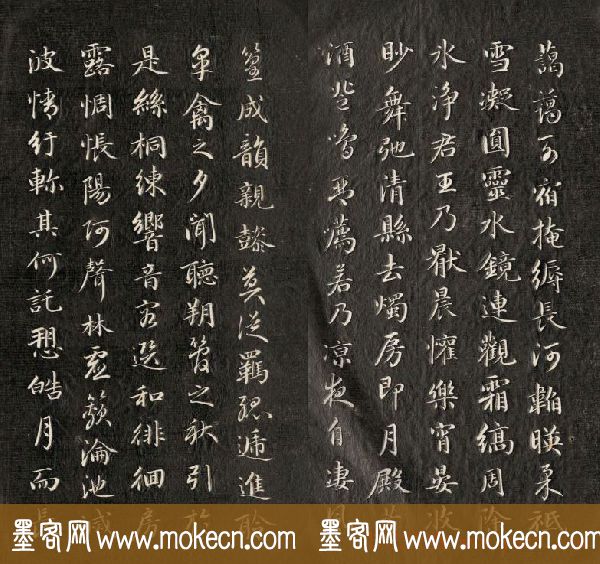 藹藹列宿掩縟長河韜暎柔祇
雪凝圓靈水鏡連觀霜縞周除
氷淨君王乃猒晨懽樂宵晏收
眇舞弛清縣去燭房即月殿芳
酒登鳴琴薦若乃涼夜自淒風
篁成韻親懿莫從羈孤遞進聆
皋禽之夕聞聽朔管之秋引於
是絲桐練響音容選和徘徊房
露惆悵陽阿聲林虛籟淪池滅
波情紆軫其何託愬皓月而長
墨客网 www.mokecn.com
墨客网 www.mokecn.com